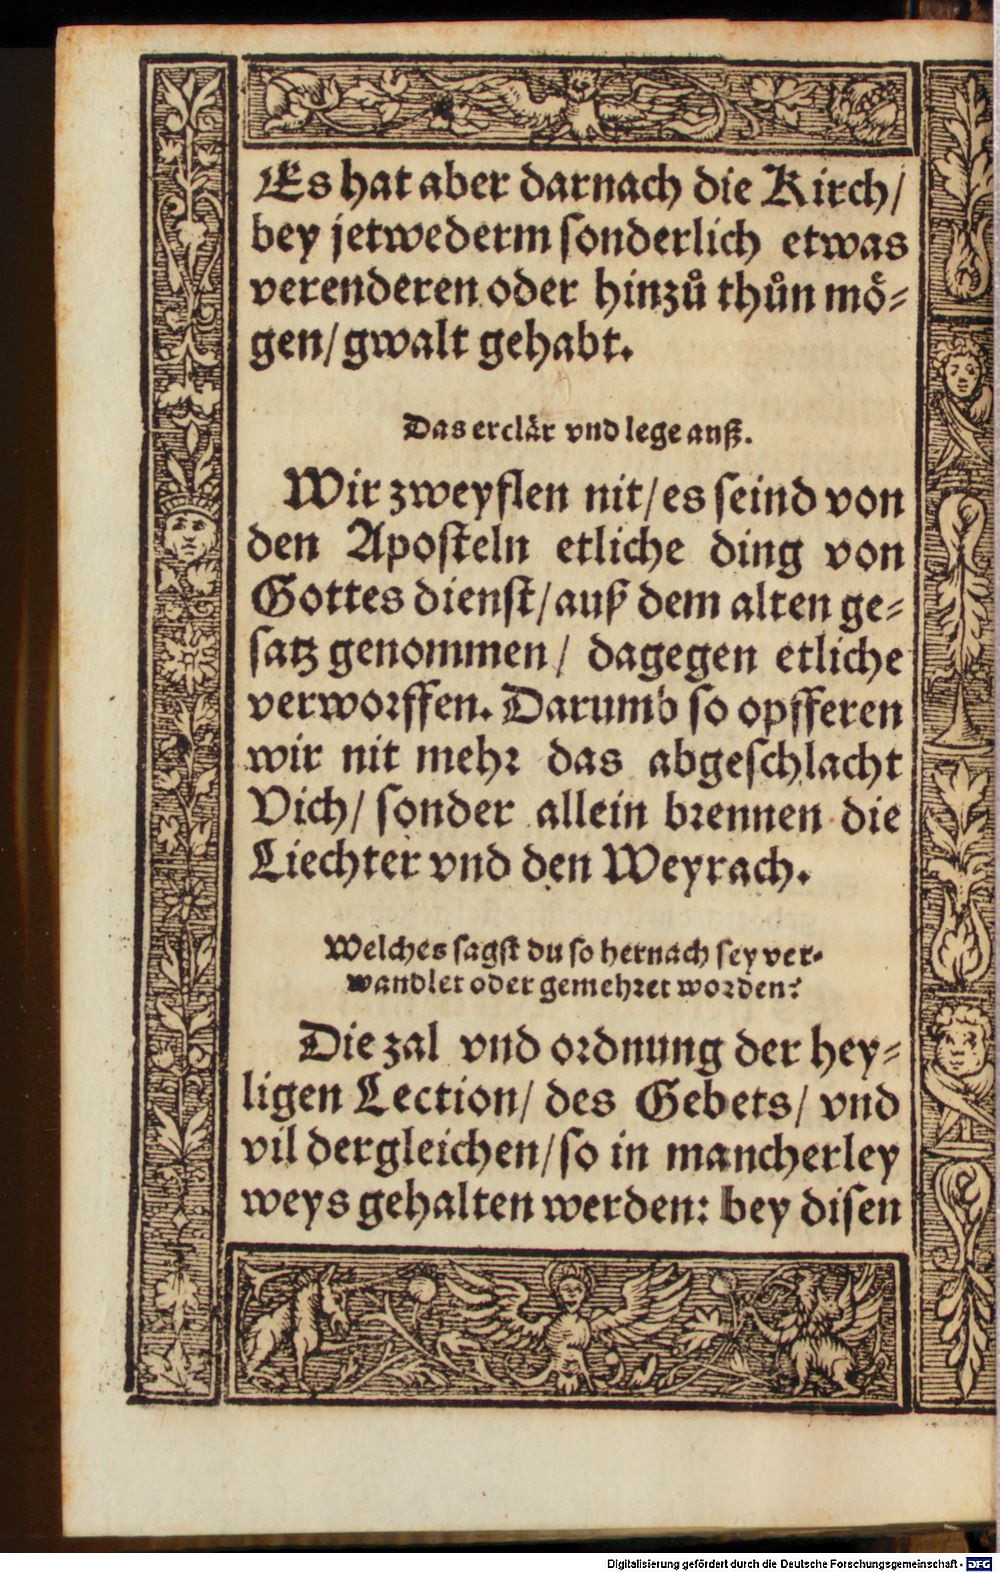 Es hat aber darnach die Kirch/
bey jetwederm sonderlich etwas
verenderen oder hinzů thůn mö⸗
gen/ gwalt gehabt.
Das erclär vnd lege auß.
Wir zweyflen nit/ es seind von
den Aposteln etliche ding von
Gottes dienst/ auß dem alten ge⸗
satz genommen/ dagegen etliche
verworffen. Darumb so opfferen
wir nit mehr das abgeschlacht
Vich/ sonder allein brennen die
Liechter vnd den Weyrach.
Welches sagst du so hernach sey ver⸗
wandlet oder gemehret worden?
Die zal vnd ordnung der hey⸗
ligen Lection/ des Gebets/ vnd
vil dergleichen/ so in mancherley
weys gehalten werden: bey disen
Digitalisierung gefördert durch die Deutsche Forschungsgemeinschaft - DFG